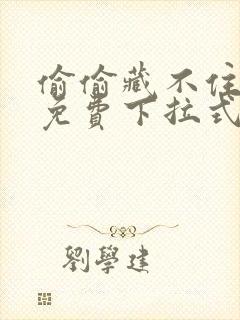 偷偷藏不住
免費下拉式
劉學建